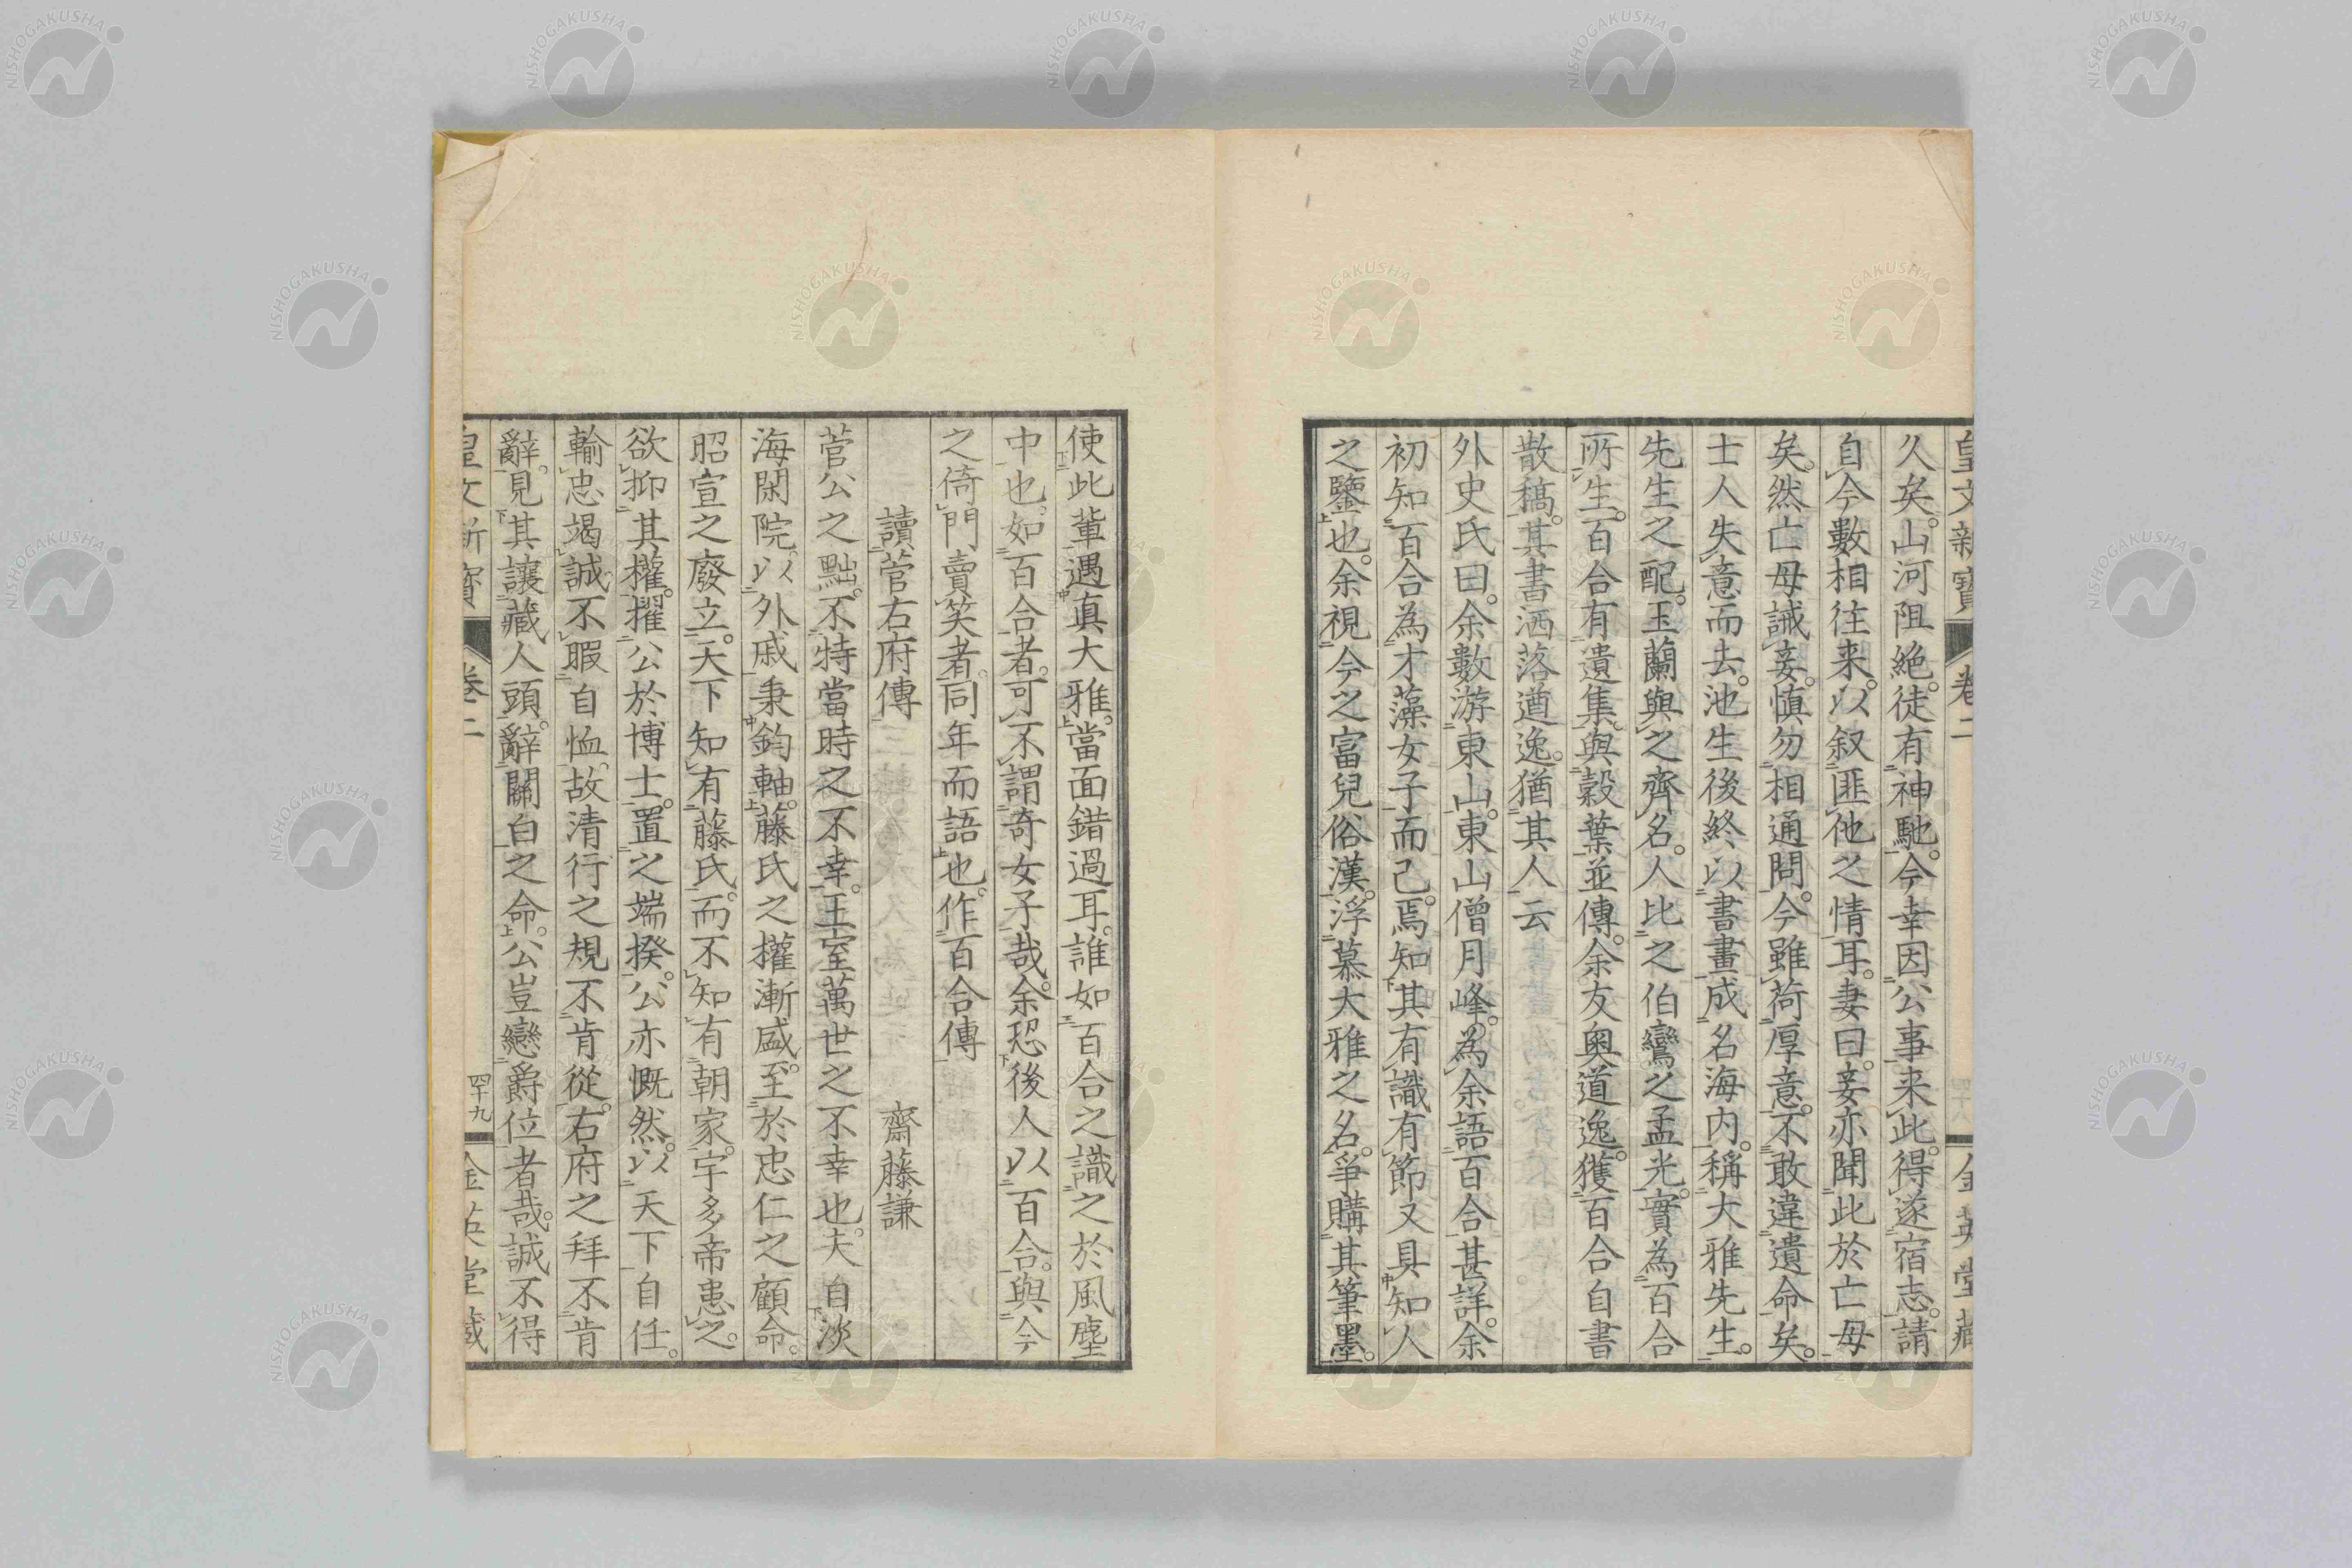 皇文新寶 卷二 金英堂藏
久矣。山河阻絶。徒有神馳。今幸因公事来此。得遂宿志。請
自今數相往来。以叙匪他之情耳。妻曰。妾亦聞此於亡母
矣。然亡母誡妾。慎勿相通問。今雖荷厚意。不敢違遺命矣。
士人失意而去。池生後終以書畫成名海内。稱大雅先生。
先生之配。玉蘭與之齊名。人比之伯鸞之孟光。實為百合
所生。百合有遺集。與穀葉並傳。余友奥道逸。獲百合自書
散稿。其書洒落遒逸。猶其人云
外史氏曰。余數游東山。東山僧月峰。為余語百合甚詳。余
初知百合為才藻女子而已。焉知其有識有節又具知人
之鑒也。余視今之富兒俗漢。浮慕大雅之名。爭購其筆墨。
使此輩遇真大雅。當面錯過耳。誰如百合之識之於風塵
中也。如百合者。可不謂奇女子哉。余恐後人以百合。與今
之倚門賣笑者。同年而語也。作百合傳
讀菅右府傳 齋藤謙
菅公之黜。不特當時之不幸。王室萬世之不幸也。夫自淡
海閑院。以外戚秉鈞軸。藤氏之權漸盛。至於忠仁之顧命。
昭宣之廢立。天下知有藤氏。而不知有朝家。宇多帝患之。
欲抑其權。擢公於博士。置之端揆。公亦慨然。以天下自任。
輸忠竭誠。不暇自恤。故清行之規不肯從。右府之拜不肯
辭。見其讓藏人頭。辭關白之命。公豈戀爵位者哉。誠不得
皇文新寶 卷二 四十九 金英堂藏